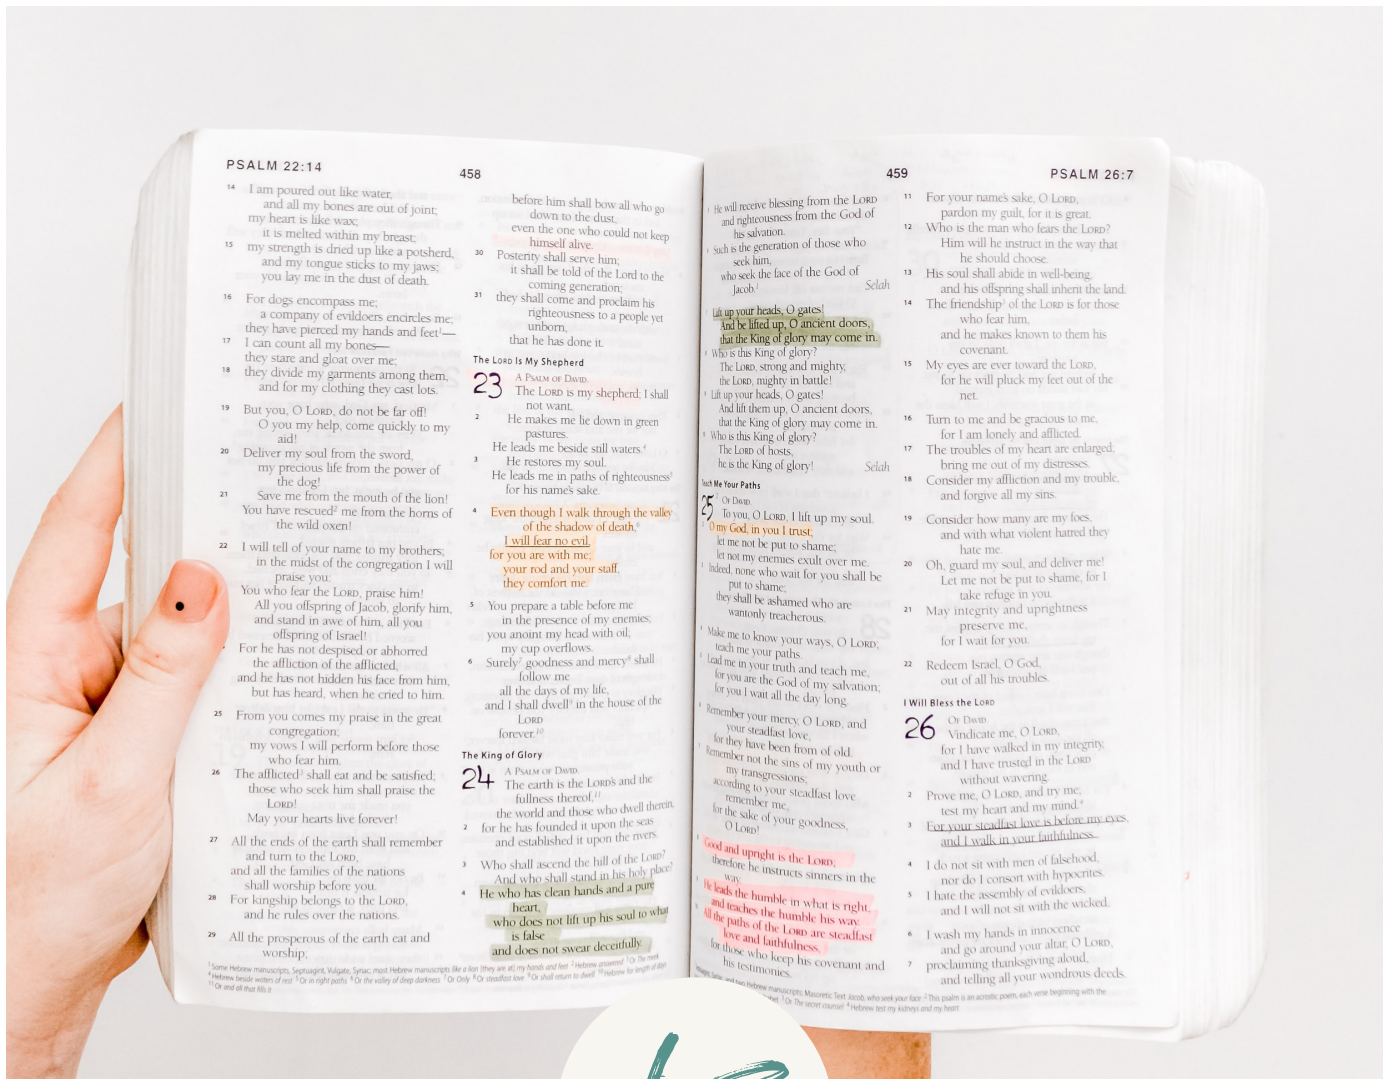 PSALM 22:14
458
14 I am poured out like water,
and all my bones are out of joint;
my heart is like wax;
it is melted within my breast;
15 my strength is dried up like a potsherd,
and my tongue sticks to my jaws;
you lay me in the dust of death.
16 For dogs encompass me;
a company of evildoers encircles me;
they have pierced my hands and feet¹—
17 I can count all my bones—
they stare and gloat over me;
18 they divide my garments among them,
and for my clothing they cast lots.
19 But you, O LORD, do not be far off!
O you my help, come quickly to my
aid!
20 Deliver my soul from the sword,
my precious life from the power of
the dog!
21 Save me from the mouth of the lion!
You have rescued² me from the horns of
the wild oxen!
22 I will tell of your name to my brothers;
in the midst of the congregation I will
praise you:
You who fear the LORD, praise him!
All you offspring of Jacob, glorify him,
and stand in awe of him, all you
offspring of Israel!
For he has not despised or abhorred
the affliction of the afflicted,
and he has not hidden his face from him,
but has heard, when he cried to him.
25 From you comes my praise in the great
congregation;
my vows I will perform before those
who fear him.
26 The afflicted³ shall eat and be satisfied;
those who seek him shall praise the
LORD!
May your hearts live forever!
27 All the ends of the earth shall remember
and turn to the LORD,
and all the families of the nations
shall worship before you.
28 For kingship belongs to the LORD,
and he rules over the nations.
29 All the prosperous of the earth eat and
worship;
before him shall bow all who go
down to the dust,
even the one who could not keep
himself alive.
30 Posterity shall serve him;
it shall be told of the Lord to the
coming generation;
31 they shall come and proclaim his
righteousness to a people yet
unborn,
that he has done it.
The LORD Is My Shepherd
23 A PSALM OF DAVID.
The LORD is my shepherd; I shall
not want.
2 He makes me lie down in green
pastures.
He leads me beside still waters.⁴
3 He restores my soul.
He leads me in paths of righteousness⁵
for his name's sake.
4 Even though I walk through the valley
of the shadow of death,⁶
I will fear no evil,
for you are with me;
your rod and your staff,
they comfort me.
5 You prepare a table before me
in the presence of my enemies;
you anoint my head with oil;
my cup overflows.
6 Surely⁷ goodness and mercy⁸ shall
follow me
all the days of my life,
and I shall dwell⁹ in the house of the
LORD
forever.¹⁰
The King of Glory
24 A PSALM OF DAVID.
The earth is the LORD's and the
fullness thereof,¹¹
the world and those who dwell therein,
2 for he has founded it upon the seas
and established it upon the rivers.
3 Who shall ascend the hill of the LORD?
And who shall stand in his holy place?
4 He who has clean hands and a pure
heart,
who does not lift up his soul to what
is false
and does not swear deceitfully.
¹ Some Hebrew manuscripts, Septuagint, Vulgate, Syriac; most Hebrew manuscripts like a lion [they are at] my hands and feet ² Hebrew answered ³ Or The meek
⁴ Hebrew beside waters of rest ⁵ Or in right paths ⁶ Or the valley of deep darkness ⁷ Or Only ⁸ Or steadfast love ⁹ Or shall return to dwell ¹⁰ Hebrew for length of days
¹¹ Or and all that fills it
459
PSALM 26:7
He will receive blessing from the LORD
and righteousness from the God of
his salvation.
Such is the generation of those who
seek him,
who seek the face of the God of
Jacob.¹ Selah
Lift up your heads, O gates!
And be lifted up, O ancient doors,
that the King of glory may come in.
Who is this King of glory?
The LORD, strong and mighty,
the LORD, mighty in battle!
Lift up your heads, O gates!
And lift them up, O ancient doors,
that the King of glory may come in.
Who is this King of glory?
The LORD of hosts,
he is the King of glory! Selah
Teach Me Your Paths
25 ² OF DAVID.
To you, O LORD, I lift up my soul.
O my God, in you I trust;
let me not be put to shame;
let not my enemies exult over me.
Indeed, none who wait for you shall be
put to shame;
they shall be ashamed who are
wantonly treacherous.
Make me to know your ways, O LORD;
teach me your paths.
Lead me in your truth and teach me,
for you are the God of my salvation;
for you I wait all the day long.
Remember your mercy, O LORD, and
your steadfast love,
for they have been from of old.
Remember not the sins of my youth or
my transgressions;
according to your steadfast love
remember me,
for the sake of your goodness,
O LORD!
Good and upright is the LORD;
therefore he instructs sinners in the
way.
He leads the humble in what is right,
and teaches the humble his way.
All the paths of the LORD are steadfast
love and faithfulness,
for those who keep his covenant and
his testimonies.
11 For your name's sake, O LORD,
pardon my guilt, for it is great.
12 Who is the man who fears the LORD?
Him will he instruct in the way that
he should choose.
13 His soul shall abide in well-being,
and his offspring shall inherit the land.
14 The friendship³ of the LORD is for those
who fear him,
and he makes known to them his
covenant.
15 My eyes are ever toward the LORD,
for he will pluck my feet out of the
net.
16 Turn to me and be gracious to me,
for I am lonely and afflicted.
17 The troubles of my heart are enlarged;
bring me out of my distresses.
18 Consider my affliction and my trouble,
and forgive all my sins.
19 Consider how many are my foes,
and with what violent hatred they
hate me.
20 Oh, guard my soul, and deliver me!
Let me not be put to shame, for I
take refuge in you.
21 May integrity and uprightness
preserve me,
for I wait for you.
22 Redeem Israel, O God,
out of all his troubles.
I Will Bless the LORD
26 OF DAVID.
Vindicate me, O LORD,
for I have walked in my integrity,
and I have trusted in the LORD
without wavering.
2 Prove me, O LORD, and try me;
test my heart and my mind.⁴
3 For your steadfast love is before my eyes,
and I walk in your faithfulness.
4 I do not sit with men of falsehood,
nor do I consort with hypocrites.
5 I hate the assembly of evildoers,
and I will not sit with the wicked.
6 I wash my hands in innocence
and go around your altar, O LORD,
7 proclaiming thanksgiving aloud,
and telling all your wondrous deeds.
and two Hebrew manuscripts; Masoretic Text Jacob, who seek your face ² This psalm is an acrostic poem, each verse beginning with the
³ Or The secret counsel ⁴ Hebrew test my kidneys and my heart